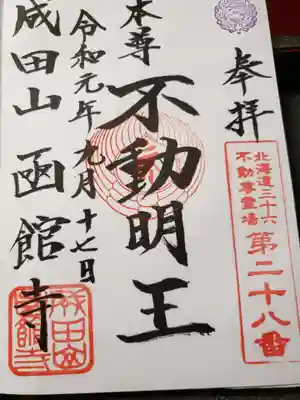 奉拝
北海道三十六
不動尊霊場
第二十八番
本尊
不動明王
令和元年九月十七日
成田山函館寺
成田山
函館寺